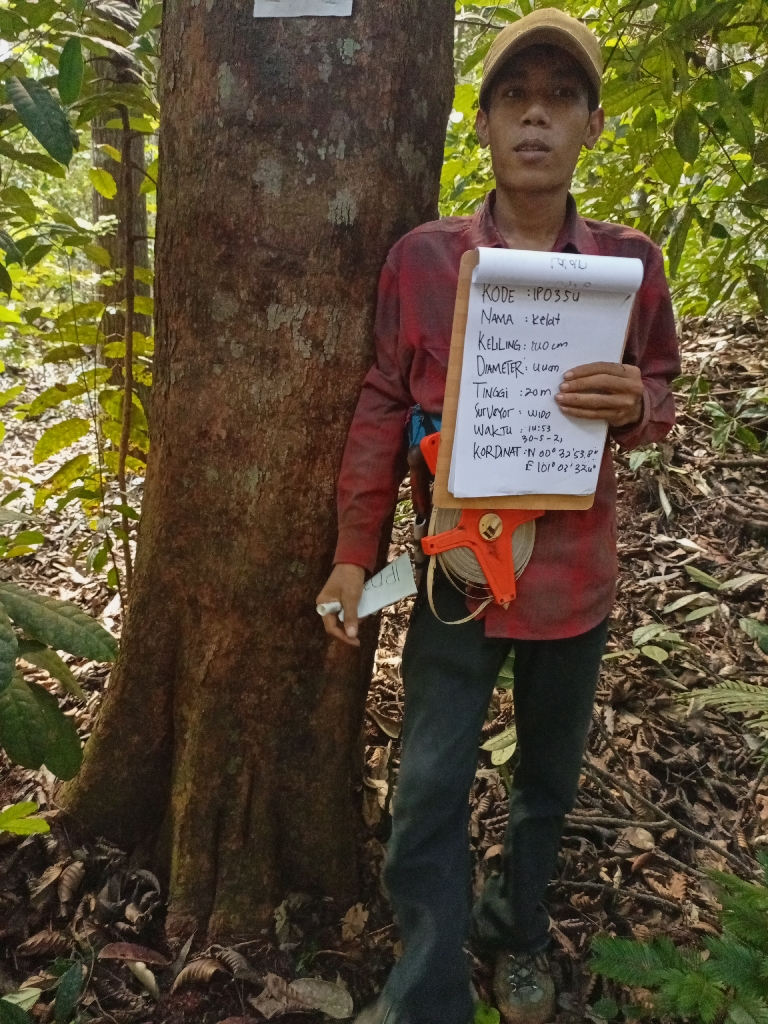 KODE : IP0354
NAMA : Kelat
KELILING : 140 cm
DIAMETER : 44 cm
TINGGI : 20 m
SURVEYOR : WIDO
WAKTU : 14:53
30-5-21
KORDINAT : N 00° 32' 53.8"
E 101° 02' 324"